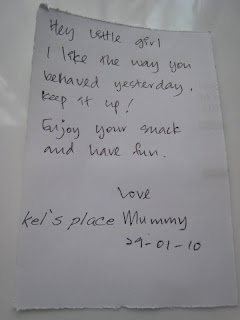 Hey little girl
I like the way you
behaved yesterday.
Keep it up!
Enjoy your snack
and have fun.
Love
kel's place Mummy
29-01-10